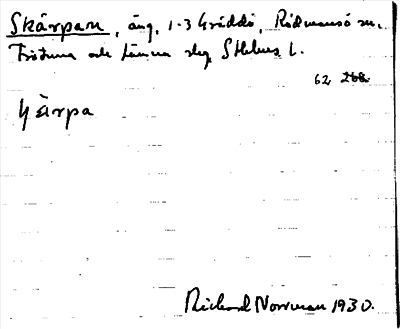 Skärpan, äng, 1-3 Gräddö, Rådmansö sn.
Frötuna och Länna skg, Sthlms l.
62 268
yärpa
Rickard Norrman 1930.